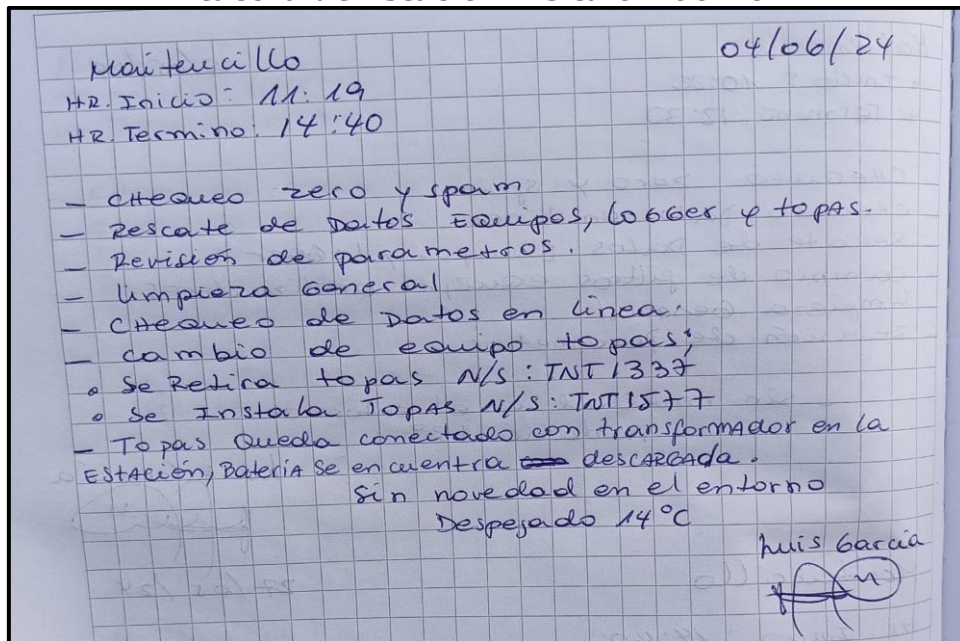 Maitencillo
04/06/24
HR. Inicio: 11:19
HR. Termino: 14:40
- CHEQUEO zero y spam
- Rescate de Datos Equipos, Logger y topas.
- Revisión de parametros.
- Limpieza General
- CHEQUEO de Datos en linea.
- cambio de equipo topas;
• Se Retira topas N/S: TNT1337
• Se Instala Topas N/S: TNT1577
- Topas Queda conectado con transformador en la
Estación, Bateria se encuentra descargada.
Sin novedad en el entorno
Despejado 14°C
Luis Garcia